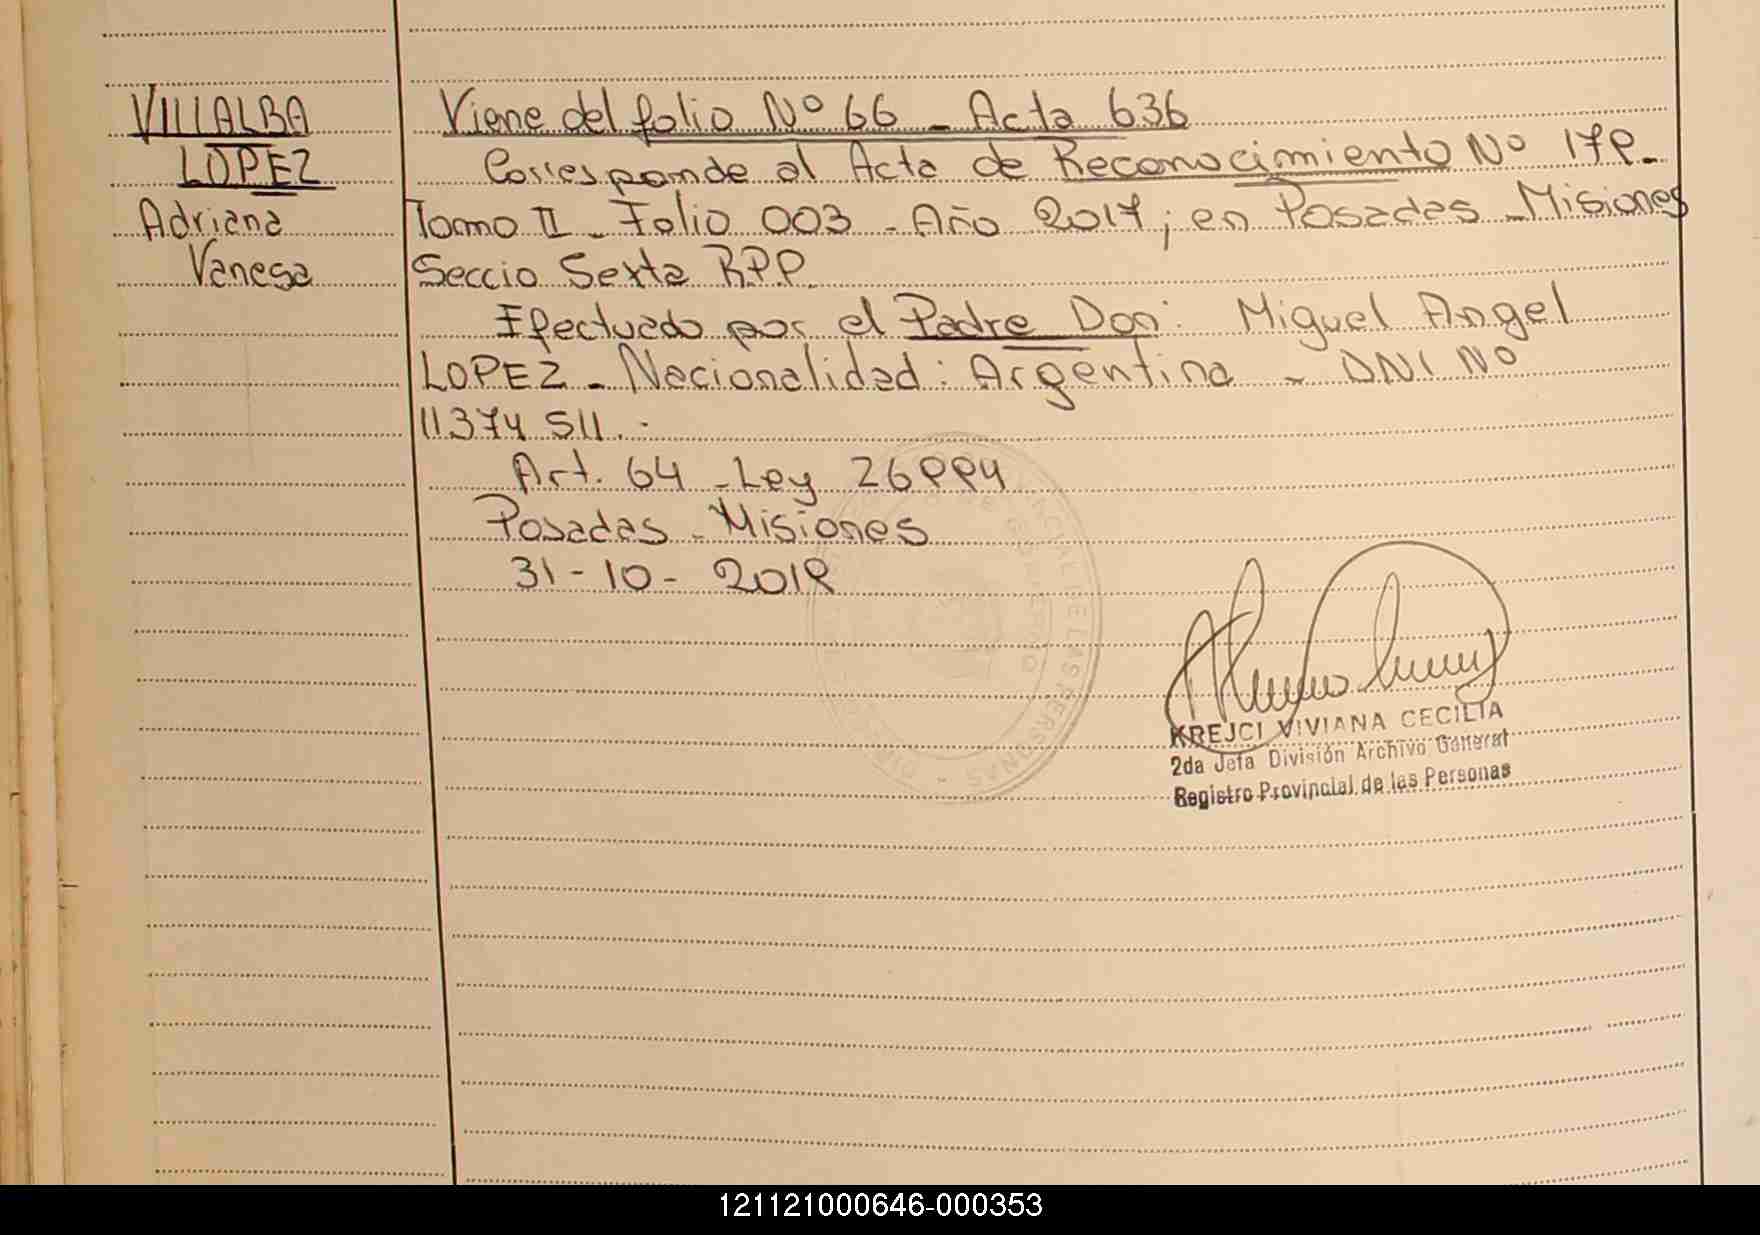 VILLALBA
LOPEZ
Adriana
Vanesa
Viene del folio Nº 66 - Acta 636
Corresponde al Acta de Reconocimiento Nº 179.-
Tomo II - Folio 003 - Año 2017; en Posadas - Misiones
Seccio Sexta R.P.P.
Efectuado por el Padre Don: Miguel Angel
LOPEZ - Nacionalidad: Argentina - DNI Nº
11374 511.-
Art. 64 - Ley 26994
Posadas - Misiones
31-10-2018
DE LAS PERSONAS
KREJCI VIVIANA CECILIA
2da Jefa División Archivo General
Registro Provincial de las Personas
121121000646-000353